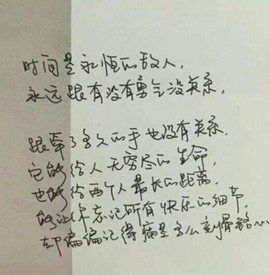 时间是永恒的敌人,
永远跟有没有勇气没关系,
跟牵了多久的手也没有关系.
它能给人无穷尽的生命,
也能给两个人最长的距离.
能让你忘记所有快乐的细节,
却偏偏记得痛是怎么刻骨铭心